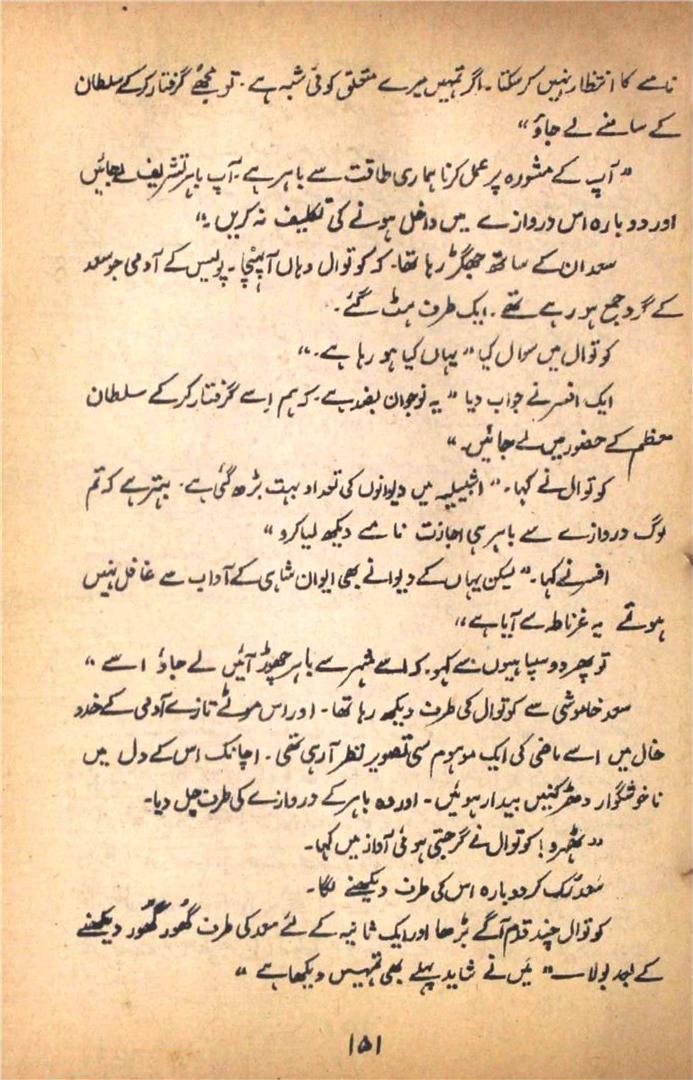 نامے کا انتظار نہیں کر سکتا۔ اگر تمہیں میرے متعلق کوئی شبہ ہے۔ تو مجھے گرفتار کر کے سلطان
کے سامنے لے جاؤ”
“آپ کے مشورہ پر عمل کرنا ہماری طاقت سے باہر ہے۔ آپ باہر تشریف لے جائیں
اور دوبارہ اس دروازے میں داخل ہونے کی تکلیف نہ کریں۔”
سعد ان کے ساتھ جھگڑ رہا تھا۔ کہ کوتوال وہاں آ پہنچا۔ پولیس کے آدمی جو سعد
کے گرد جمع ہو رہے تھے۔ ایک طرف ہٹ گئے۔
کوتوال میں سوال کیا “یہاں کیا ہو رہا ہے۔”
ایک افسر نے جواب دیا “یہ نوجوان بضد ہے۔ کہ ہم اِسے گرفتار کر کے سلطان
معظم کے حضور میں لے جائیں۔”
کوتوال نے کہا۔ “اشبیلیہ میں دیوانوں کی تعداد بہت بڑھ گئی ہے۔ بہتر ہے کہ تم
لوگ دروازے سے باہر ہی اجازت نامے دیکھ لیا کرو”
افسر نے کہا۔ “لیکن یہاں کے دیوانے بھی ایوان شاہی کے آداب سے غافل نہیں
ہوتے یہ غرناطہ سے آیا ہے”
تو پھر دو سپاہیوں سے کہو۔ کہ اسے شہر سے باہر چھوڑ آئیں لے جاؤ اسے”
سعد خاموشی سے کوتوال کی طرف دیکھ رہا تھا۔ اور اس موٹے تازے آدمی کے خدد
خال میں اسے ماضی کی ایک موہوم سی تصویر نظر آ رہی تھی۔ اچانک اس کے دل میں
ناخوشگوار دھڑکنیں بیدار ہوئیں۔ اور وہ باہر کے دروازے کی طرف چل دیا۔
“ٹھہرو! کوتوال نے گرجتی ہوئی آواز میں کہا۔
سَعد رُک کر دوبارہ اس کی طرف دیکھنے لگا۔
کوتوال چند قدم آگے بڑھا اور ایک ثانیہ کے لئے سعد کی طرف گھُور گھُور دیکھنے
کے بعد بولا — “میں نے شاید پہلے بھی تمہیں دیکھا ہے”
۱۵۱